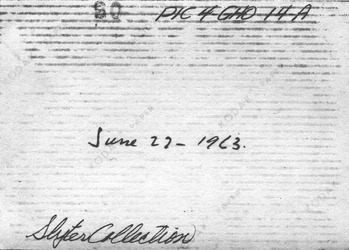 PIC 4-GHO 14-A
June 27-1963.
Slyter Collection